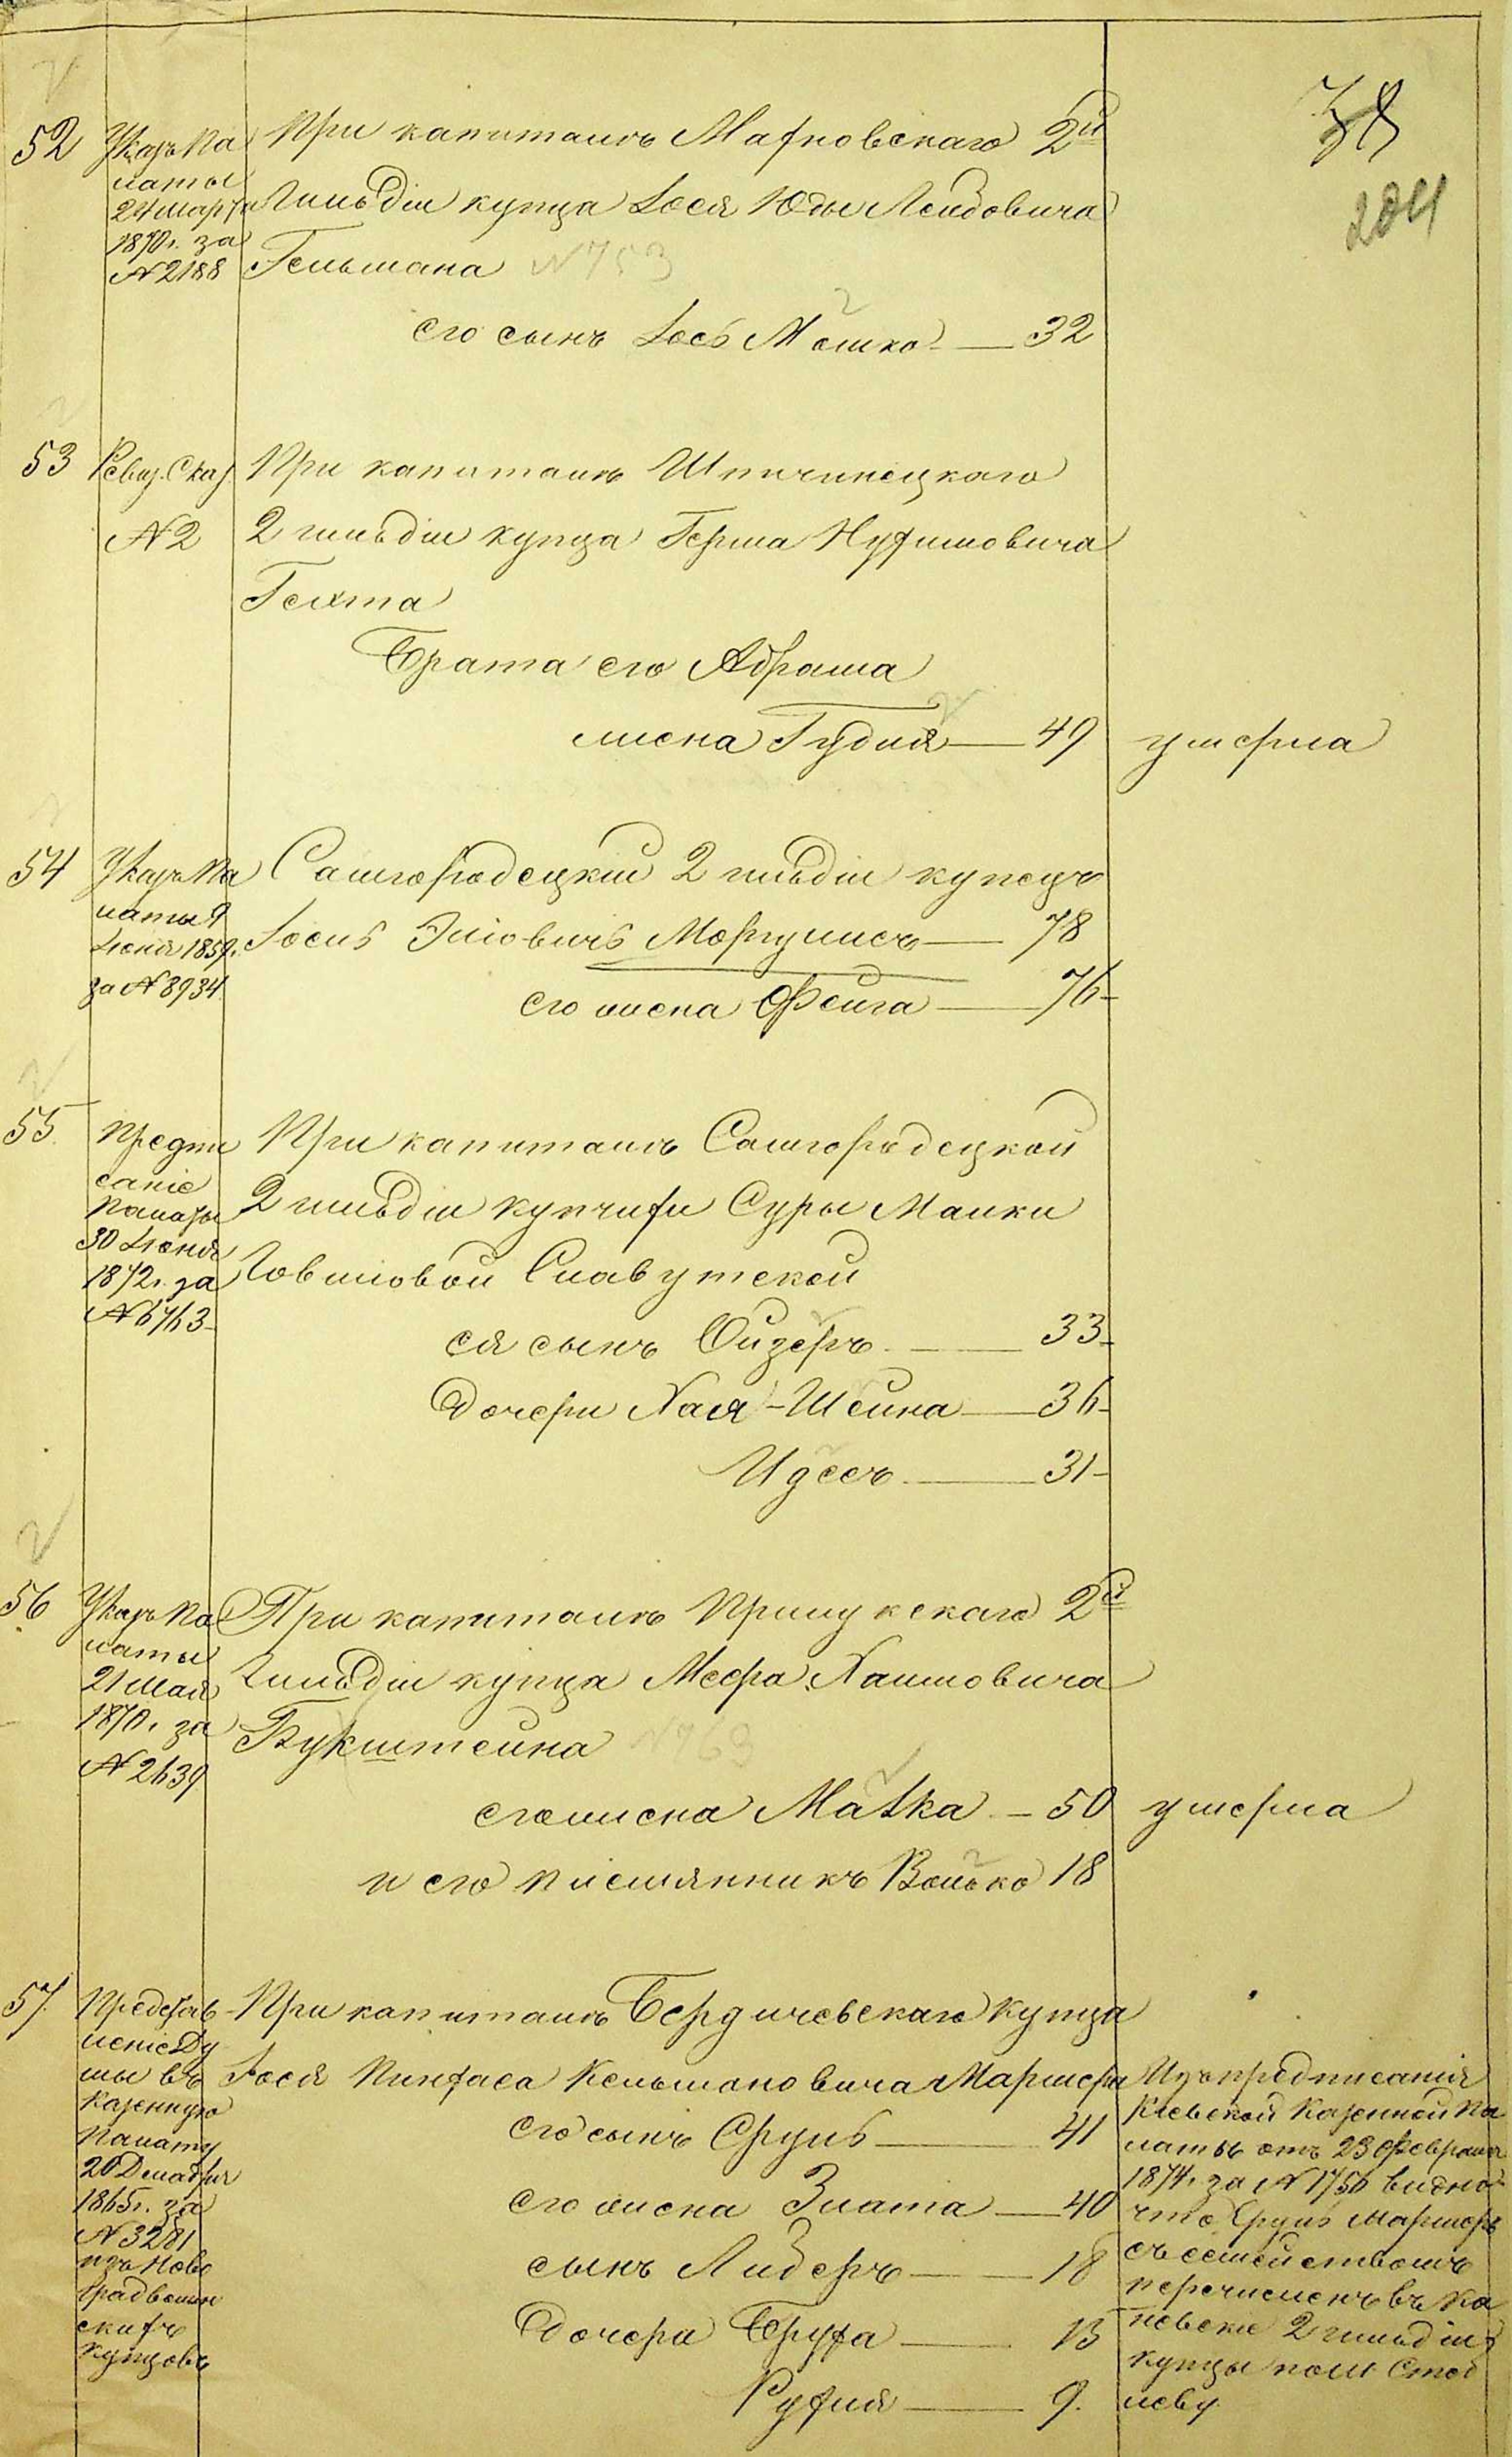 38
204
52 Указъ Па
латы
24 Марта
1870 г. за
№ 2188
При капиталѣ Махновскаго 2й
Гильдіи купца Іося Юды Лейбовича
Гельмана № 753
его сынъ Іось Мошко — 32
53 Ревиз. Сказ.
№ 2
При капиталѣ Шпичинецкаго
2 гильдіи купца Герша Нухимовича
Гехта
Брата его Абрама
жена Гудля — 49 умерла
54 Указъ Па
латы 9
Іюня 1859 г.
за № 8934
Самгородецкій 2 гильдіи купецъ
Іосиъ Эліовичъ Моргулисъ — 78
его жена Фейга — 76
55 Предпи
саніе
Палаты
30 Іюня
1872 г. за
№ 6763
При капиталѣ Самгородецкой
2 гильдіи купчихи Суры Малки
Славутской
ея сынъ Ойзеръ — 33
Дочери Хая-Шейна — 36
Идесъ — 31
56 Указъ Па
латы
21 Мая
1870 г. за
№ 2639
При капиталѣ Прилукскаго 2й
Гильдіи купца Меера Хаимовича
Букштейна № 763
его жена Матка — 50 умерла
и его племянникъ Волько 18
57 Представ
леніе Ду
мы въ
Казенную
Палату
20 Декабря
1865 г. за
№ 3281
изъ Ново
градволын
скихъ
Купцовъ
При капиталѣ Бердичевскаго Купца
Іося Пинхаса Кельмановича Маршера
его сынъ Сруль — 41
его жена Злата — 40
сынъ Лидеръ — 18
Дочери Бруха — 13
Рухля — 9.
Изъ предписанія
Кіевской Казенной Па
латы отъ 23 Февраля
1874 г. за № 1756 видно
что Сруль Маршеръ
съ семействомъ
перечисленъ въ Ка
невскіе 2 гильдіи
купцы пом.